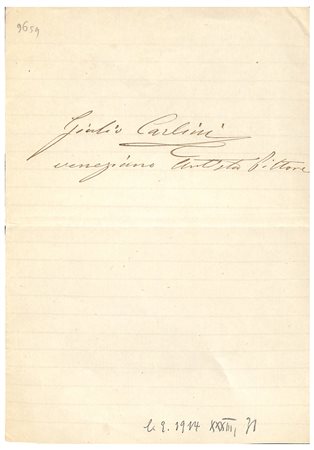 9659
Giulio Carlini
veneziano Artista Pittore
6. 2. 1914 XXXIII, 71